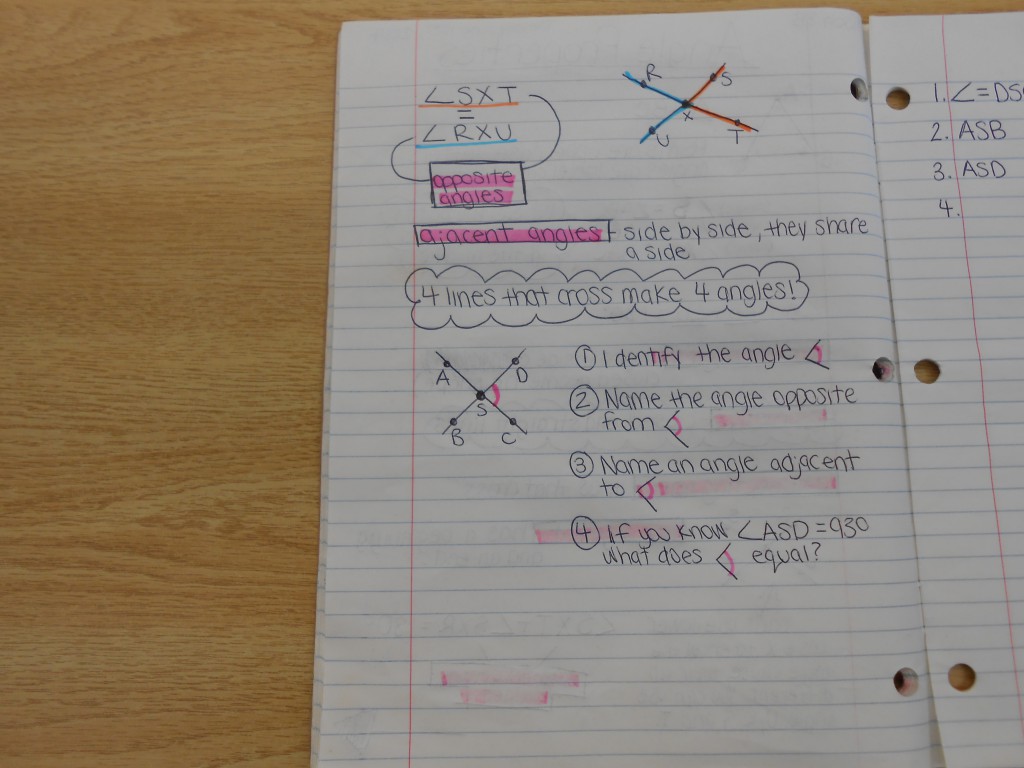 ∠SXT
=
∠RXU
opposite
angles
R
S
X
U
T
ajacent angles - side by side, they share
a side
4 lines that cross make 4 angles!
A
D
S
B
C
① Identify the angle ∠
② Name the angle opposite
from ∠
③ Name an angle adjacent
to ∠
④ If you know ∠ASD = 930
what does ∠ equal?
1. ∠=DS
2. ASB
3. ASD
4.